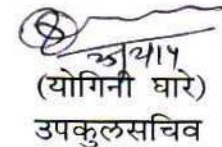 (योगिनी घारे)
उपकुलसचिव